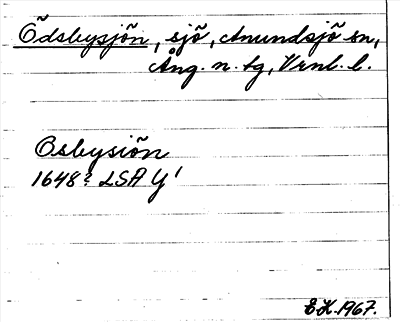 Ödsbysjön, sjö, Anundsjö sn,
Ång. n. tg, Vrnl. l.
Osbysiön
1648? LSA Y1
E.H. 1967.